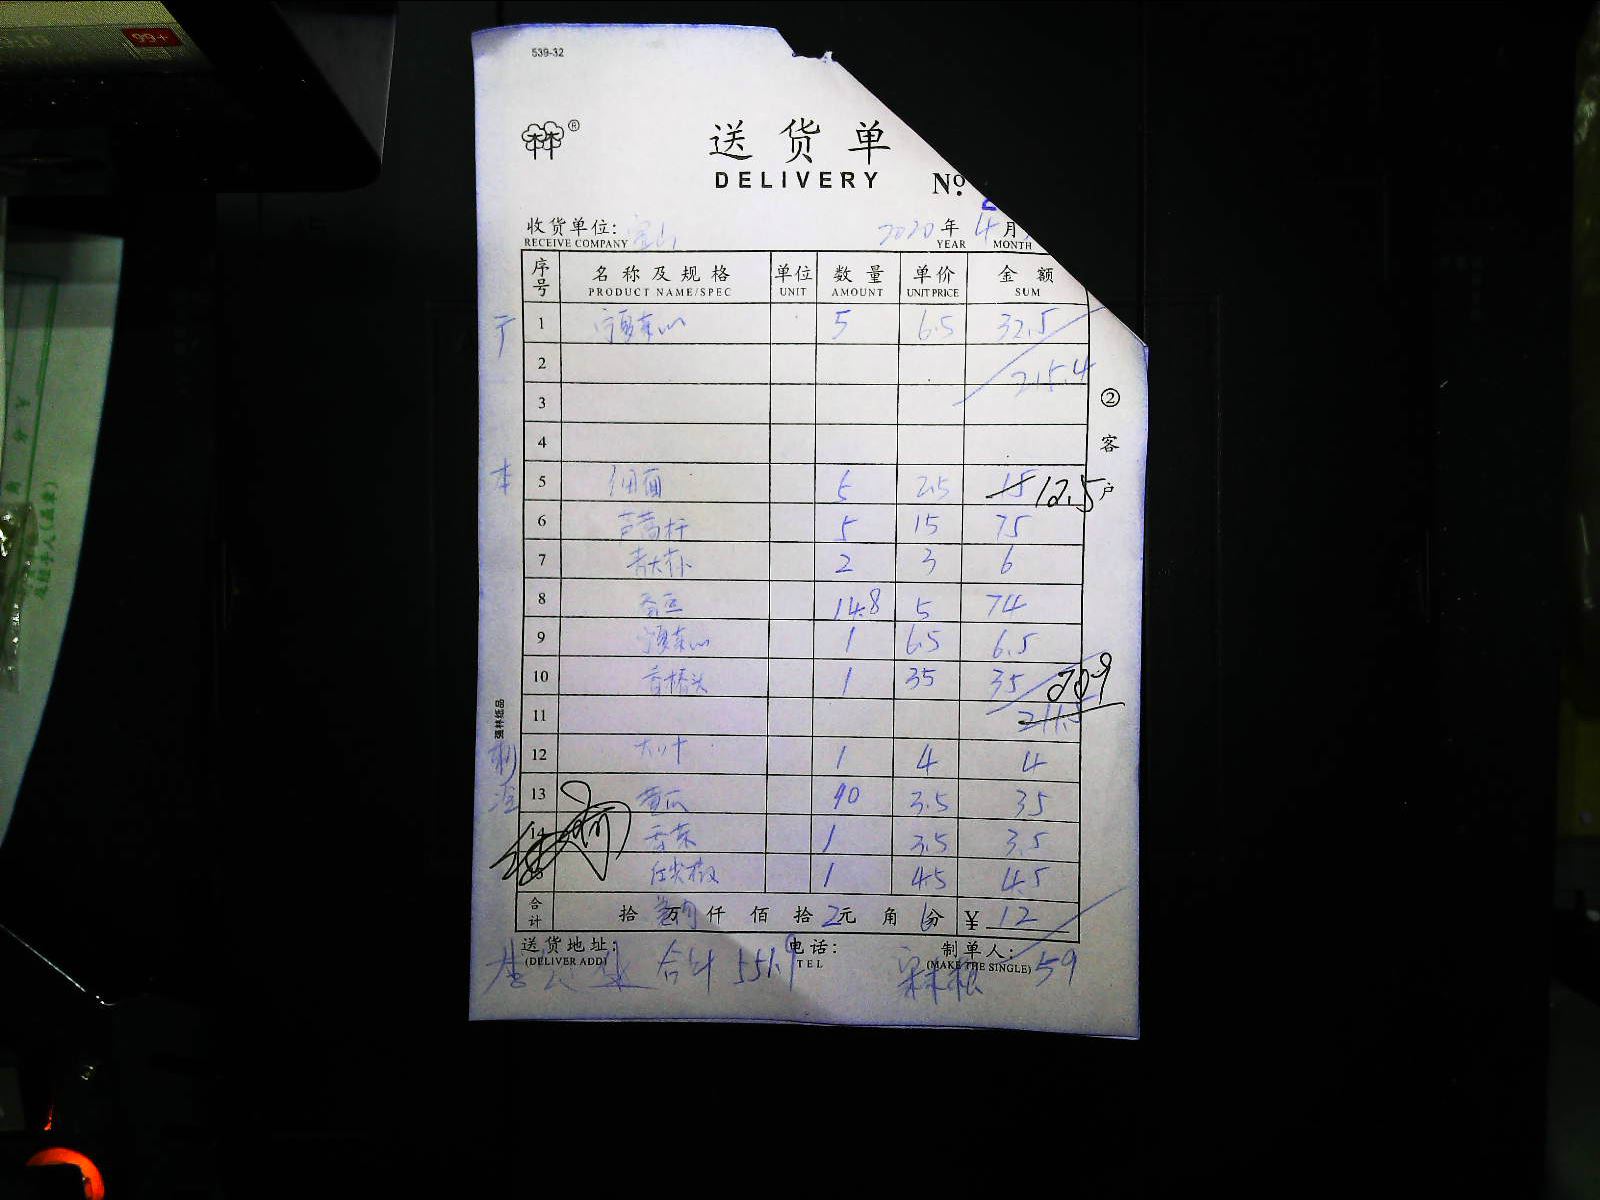 99+
539-32
®
送货单
DELIVERY No.
收货单位: 宝山 2020年4月
RECEIVE COMPANY YEAR MONTH
序号 名称及规格 单位 数量 单价 金额
PRODUCT NAME/SPEC UNIT AMOUNT UNIT PRICE SUM
1 宁夏菜心 5 6.5 32.5
2 215.4
3
4
② 客户
本
5 细面 5 2.5 15 12.5
6 茼蒿杆 5 15 75
7 2 3 6
8 14.8 5 74
9 宁夏菜心 1 6.5 6.5
10 香椿头 1 35 35 209
11 211.5
强林纸品
12 大叶 1 4 4
13 黄瓜 10 3.5 35
14 香菜 1 3.5 3.5
15 红尖椒 1 4.5 4.5
合计 拾 万 仟 佰 拾 2元 角 6分 ¥ 12
送货地址: 电话: 制单人:
(DELIVER ADD) TEL (MAKE THE SINGLE) 59
合计 551.9